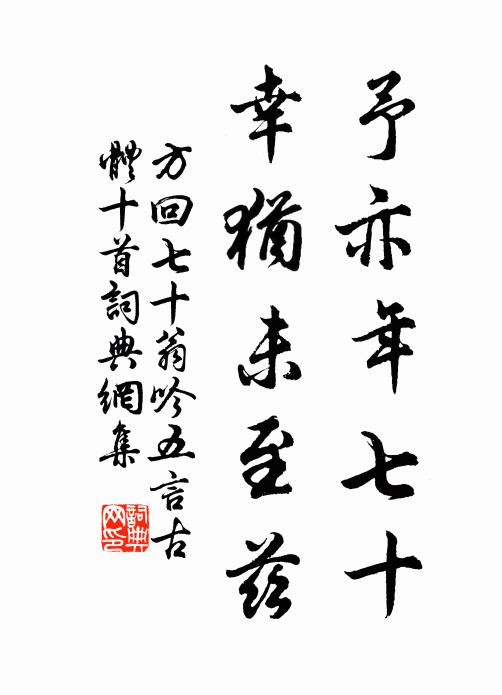 予亦年七十
幸猶未至茲
方回七十翁吟五言古
體十首詞典網集
詞典
网印